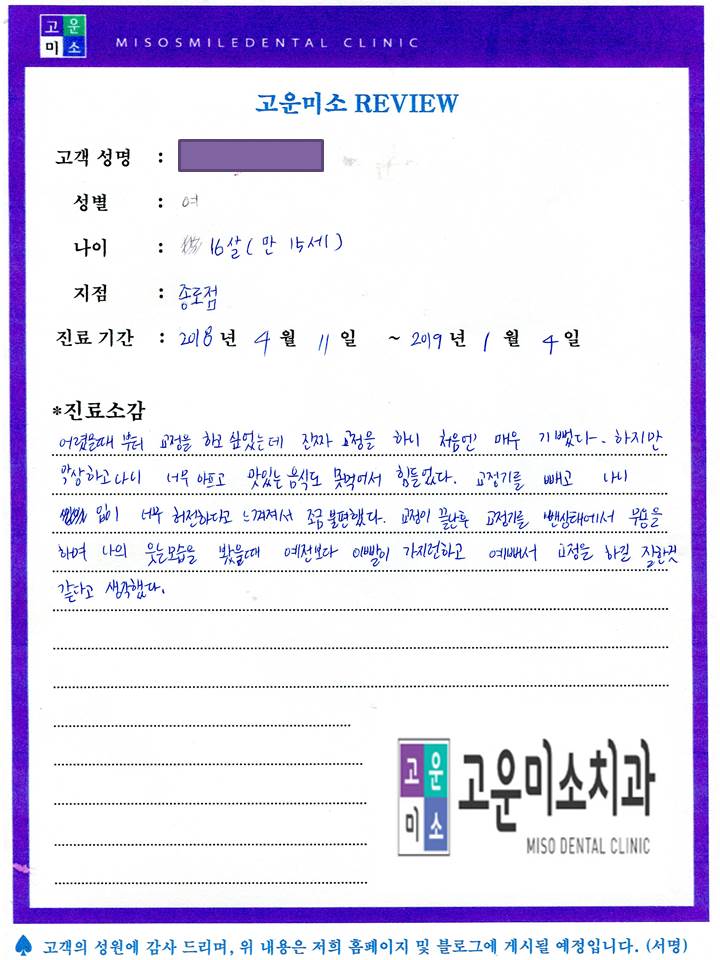 고운
미소
MISOSMILEDENTAL CLINIC
고운미소 REVIEW
고객 성명 :
성별 : 여
나이 : 16살 ( 만 15세 )
지점 : 종로점
진료 기간 : 2018 년 4 월 11 일 ~ 2019 년 1 월 4 일
*진료소감
어렸을때 부터 교정을 하고 싶었는데 진짜 교정을 하니 처음엔 매우 기뻤다. 하지만
막상하고나니 너무 아프고 맛있는 음식도 못먹어서 힘들었다. 교정기를 빼고 나니
입이 너무 허전하다고 느껴져서 조금 불편했다. 교정이 끝난후 교정기를 뺀상태에서 무용을
하며 나의 웃는모습을 봤을때 예전보다 이빨이 가지런하고 예뻐서 교정을 하길 잘한것
같다고 생각했다.
고운
미소
고운미소치과
MISO DENTAL CLINIC
♠ 고객의 성원에 감사 드리며, 위 내용은 저희 홈페이지 및 블로그에 게시될 예정입니다. (서명)